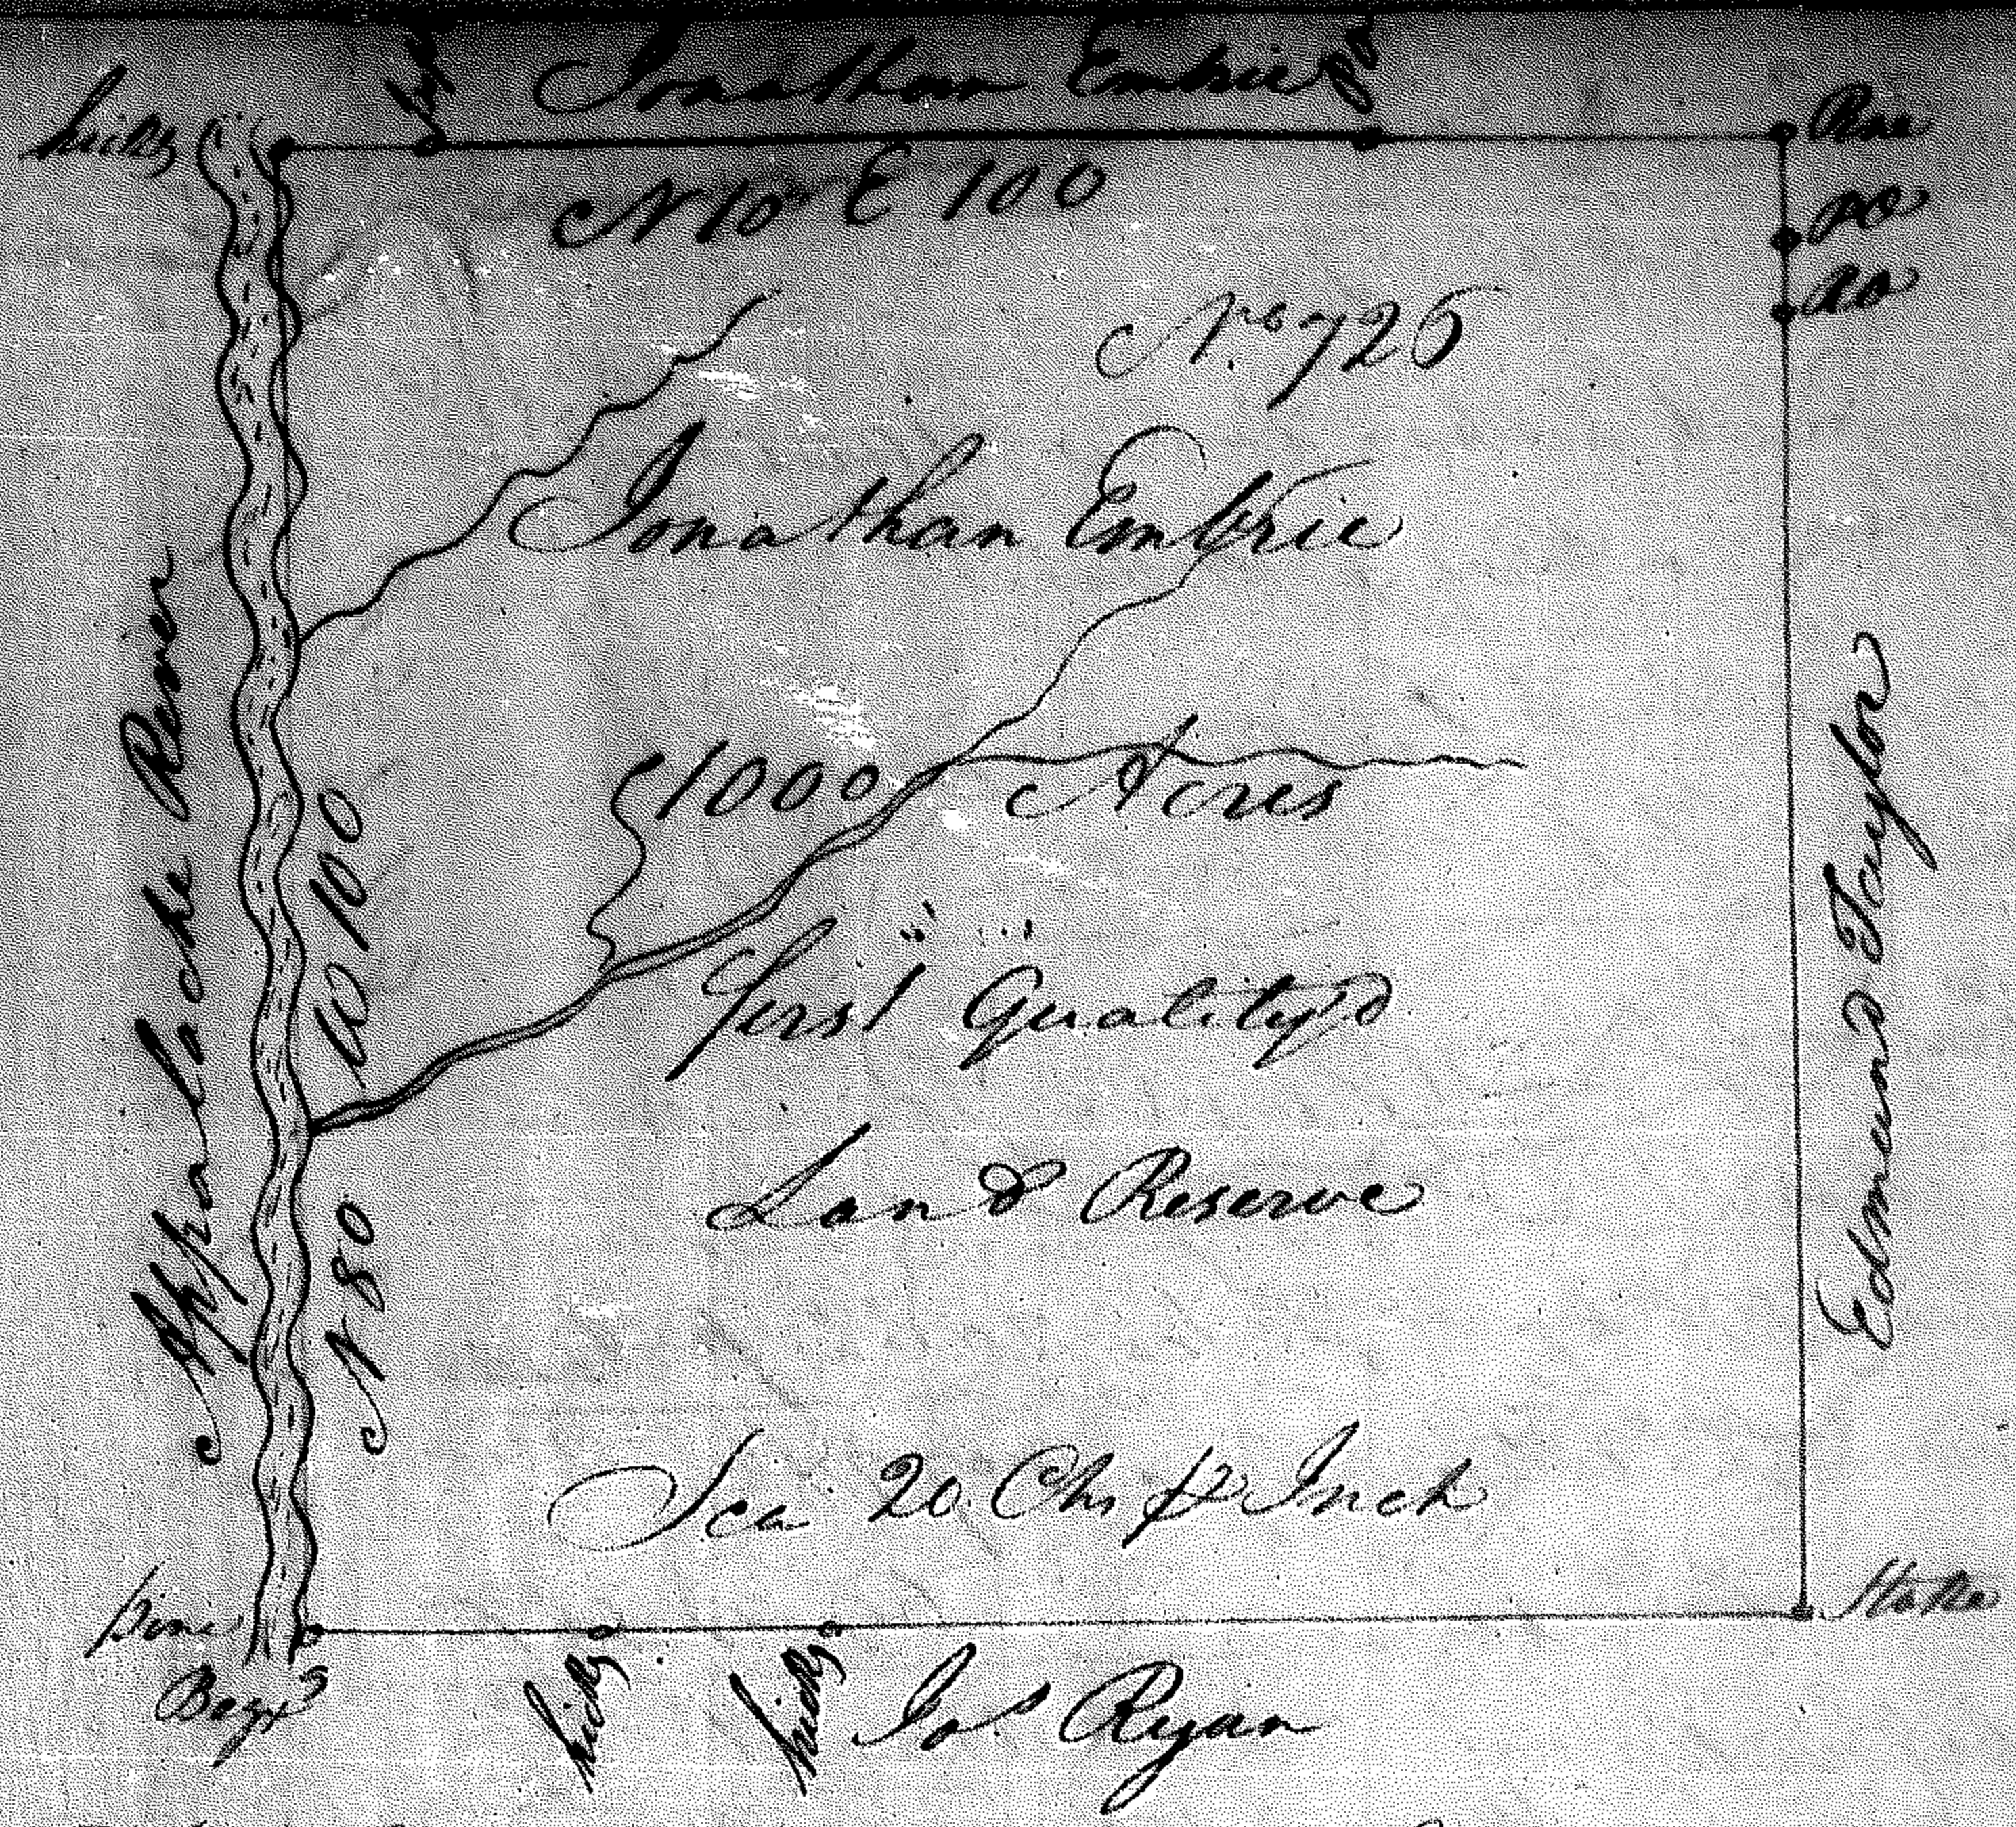 Jonathan Embrie
hicky
N 10 E 100
do
No 726
Jonathan Embrie
1000 Acres
first Quality'd
Land Reserve
Sca 20 Chs pr Inch
Appalache River
N 80 W 100
Edmund Taylor
pine
Begg
Stake
hicky
hicky
Jos Ryan